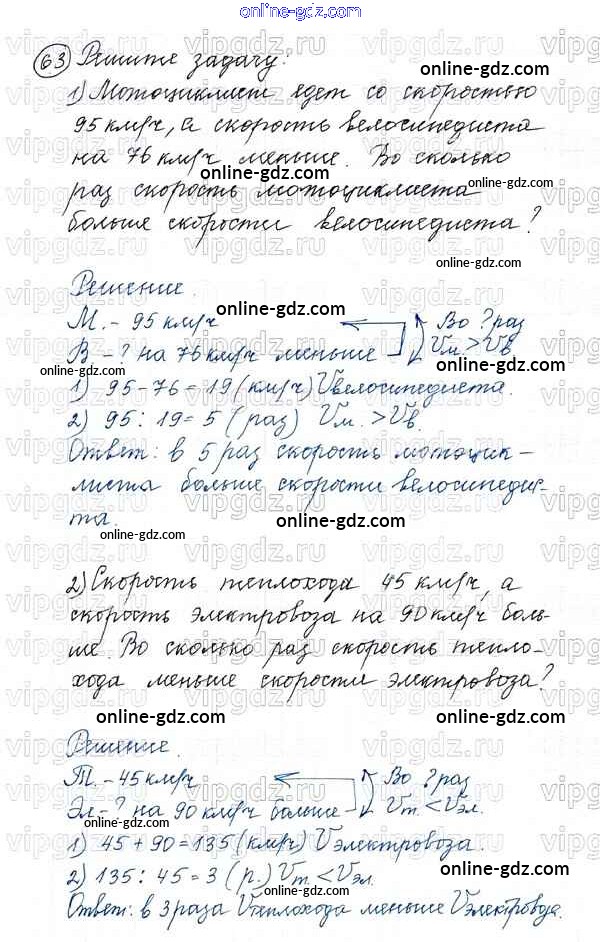 online-gdz.com
63 Решите задачу:
1) Мотоциклист едет со скоростью
95 км/ч, а скорость велосипедиста
на 76 км/ч меньше. Во сколько
раз скорость мотоциклиста
больше скорости велосипедиста?
Решение.
М. - 95 км/ч Во ? раз
В - ? на 76 км/ч меньше Vм. > Vв
1) 95 - 76 = 19 (км/ч) Vвелосипедиста.
2) 95 : 19 = 5 (раз) Vм. > Vв.
Ответ: в 5 раз скорость мотоцик-
листа больше скорости велосипедис-
та.
2) Скорость теплохода 45 км/ч, а
скорость электровоза на 90 км/ч боль-
ше. Во сколько раз скорость тепло-
хода меньше скорости электровоза?
Решение.
Т. - 45 км/ч Во ? раз
Эл - ? на 90 км/ч больше Vт. < Vэл.
1) 45 + 90 = 135 (км/ч) Vэлектровоза.
2) 135 : 45 = 3 (р.) Vт. < Vэл.
Ответ: в 3 раза Vтеплохода меньше Vэлектровоза.